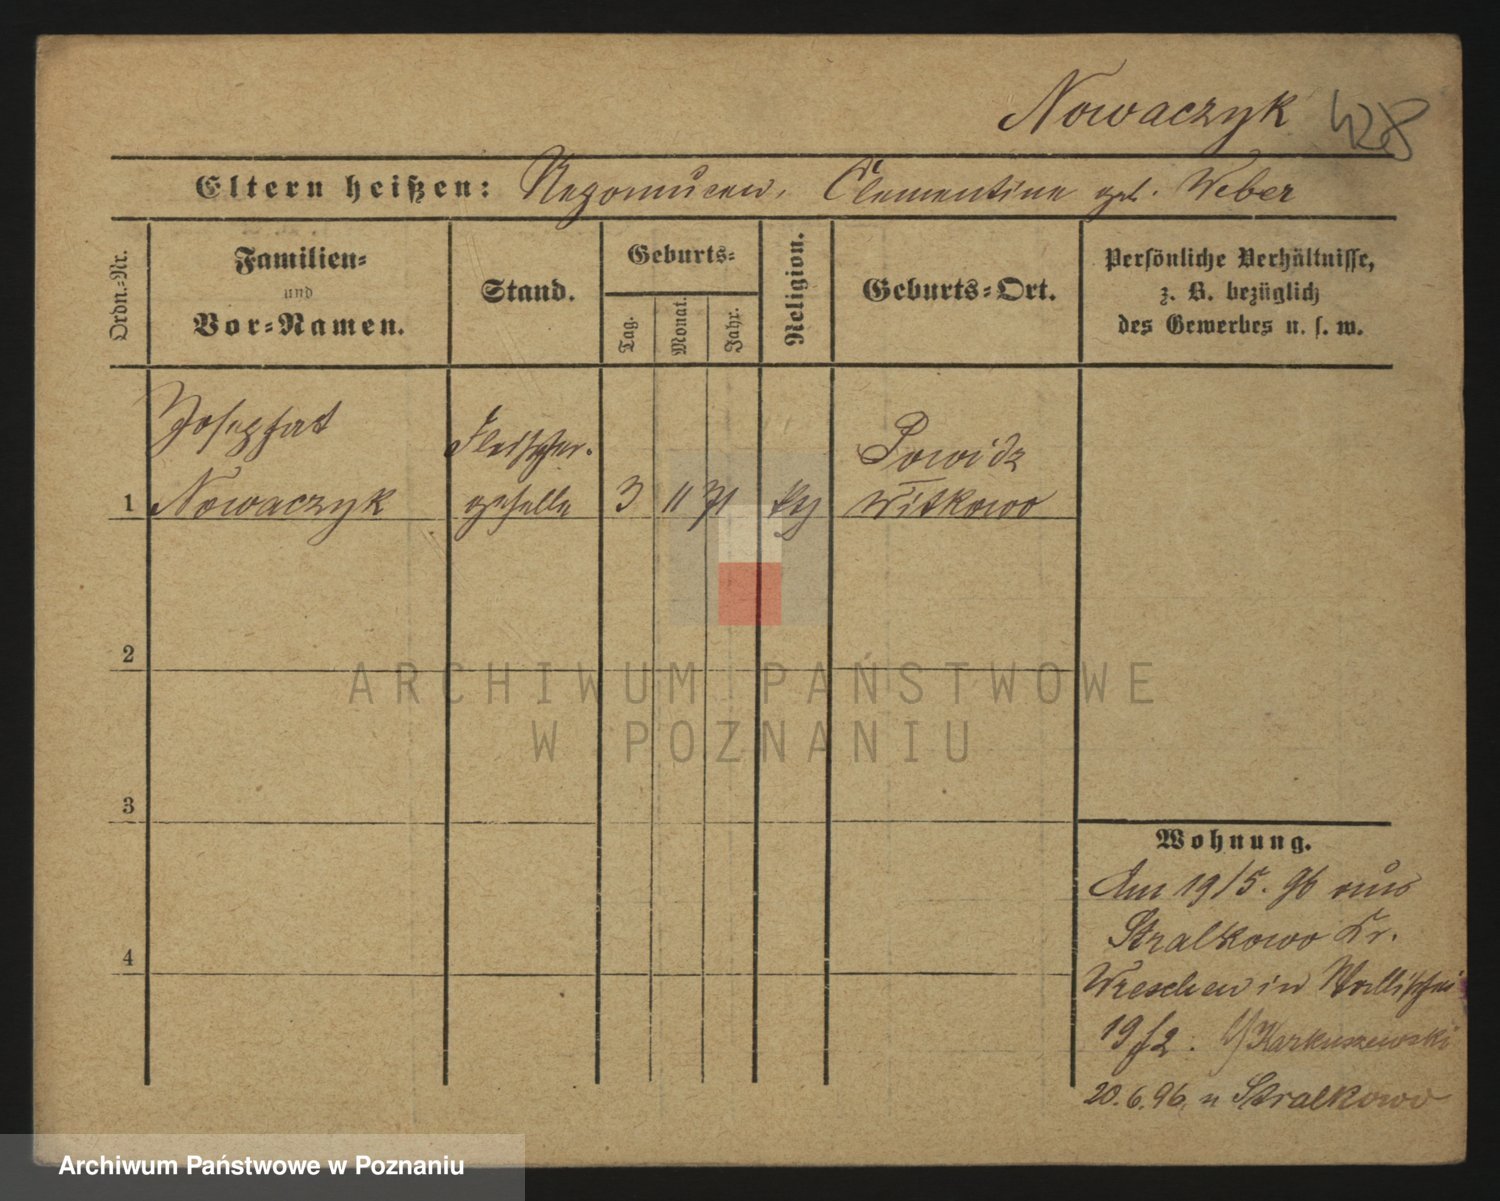 Nowaczyk 428
Eltern heißen: Nepomucen, Clementine geb. Weber
Ordn.-Nr.
Familien-
und
Vor-Namen.
Stand.
Geburts-
Tag.
Monat.
Jahr.
Religion.
Geburts-Ort.
Persönliche Verhältnisse,
z. B. bezüglich
des Gewerbes u. s. w.
Josephat
Fleischer-
Powidz
1 Nowaczyk geselle 3 11 71 Witkowo
2
ARCHIWUM PAŃSTWOWE
W POZNANIU
3
Wohnung.
Am 19/5. 96 aus
Stralkowo Kr.
4
Wreschen in Wallischei
19 f2. Karkuszewski
20.6.96 n Stralkowo
Archiwum Państwowe w Poznaniu